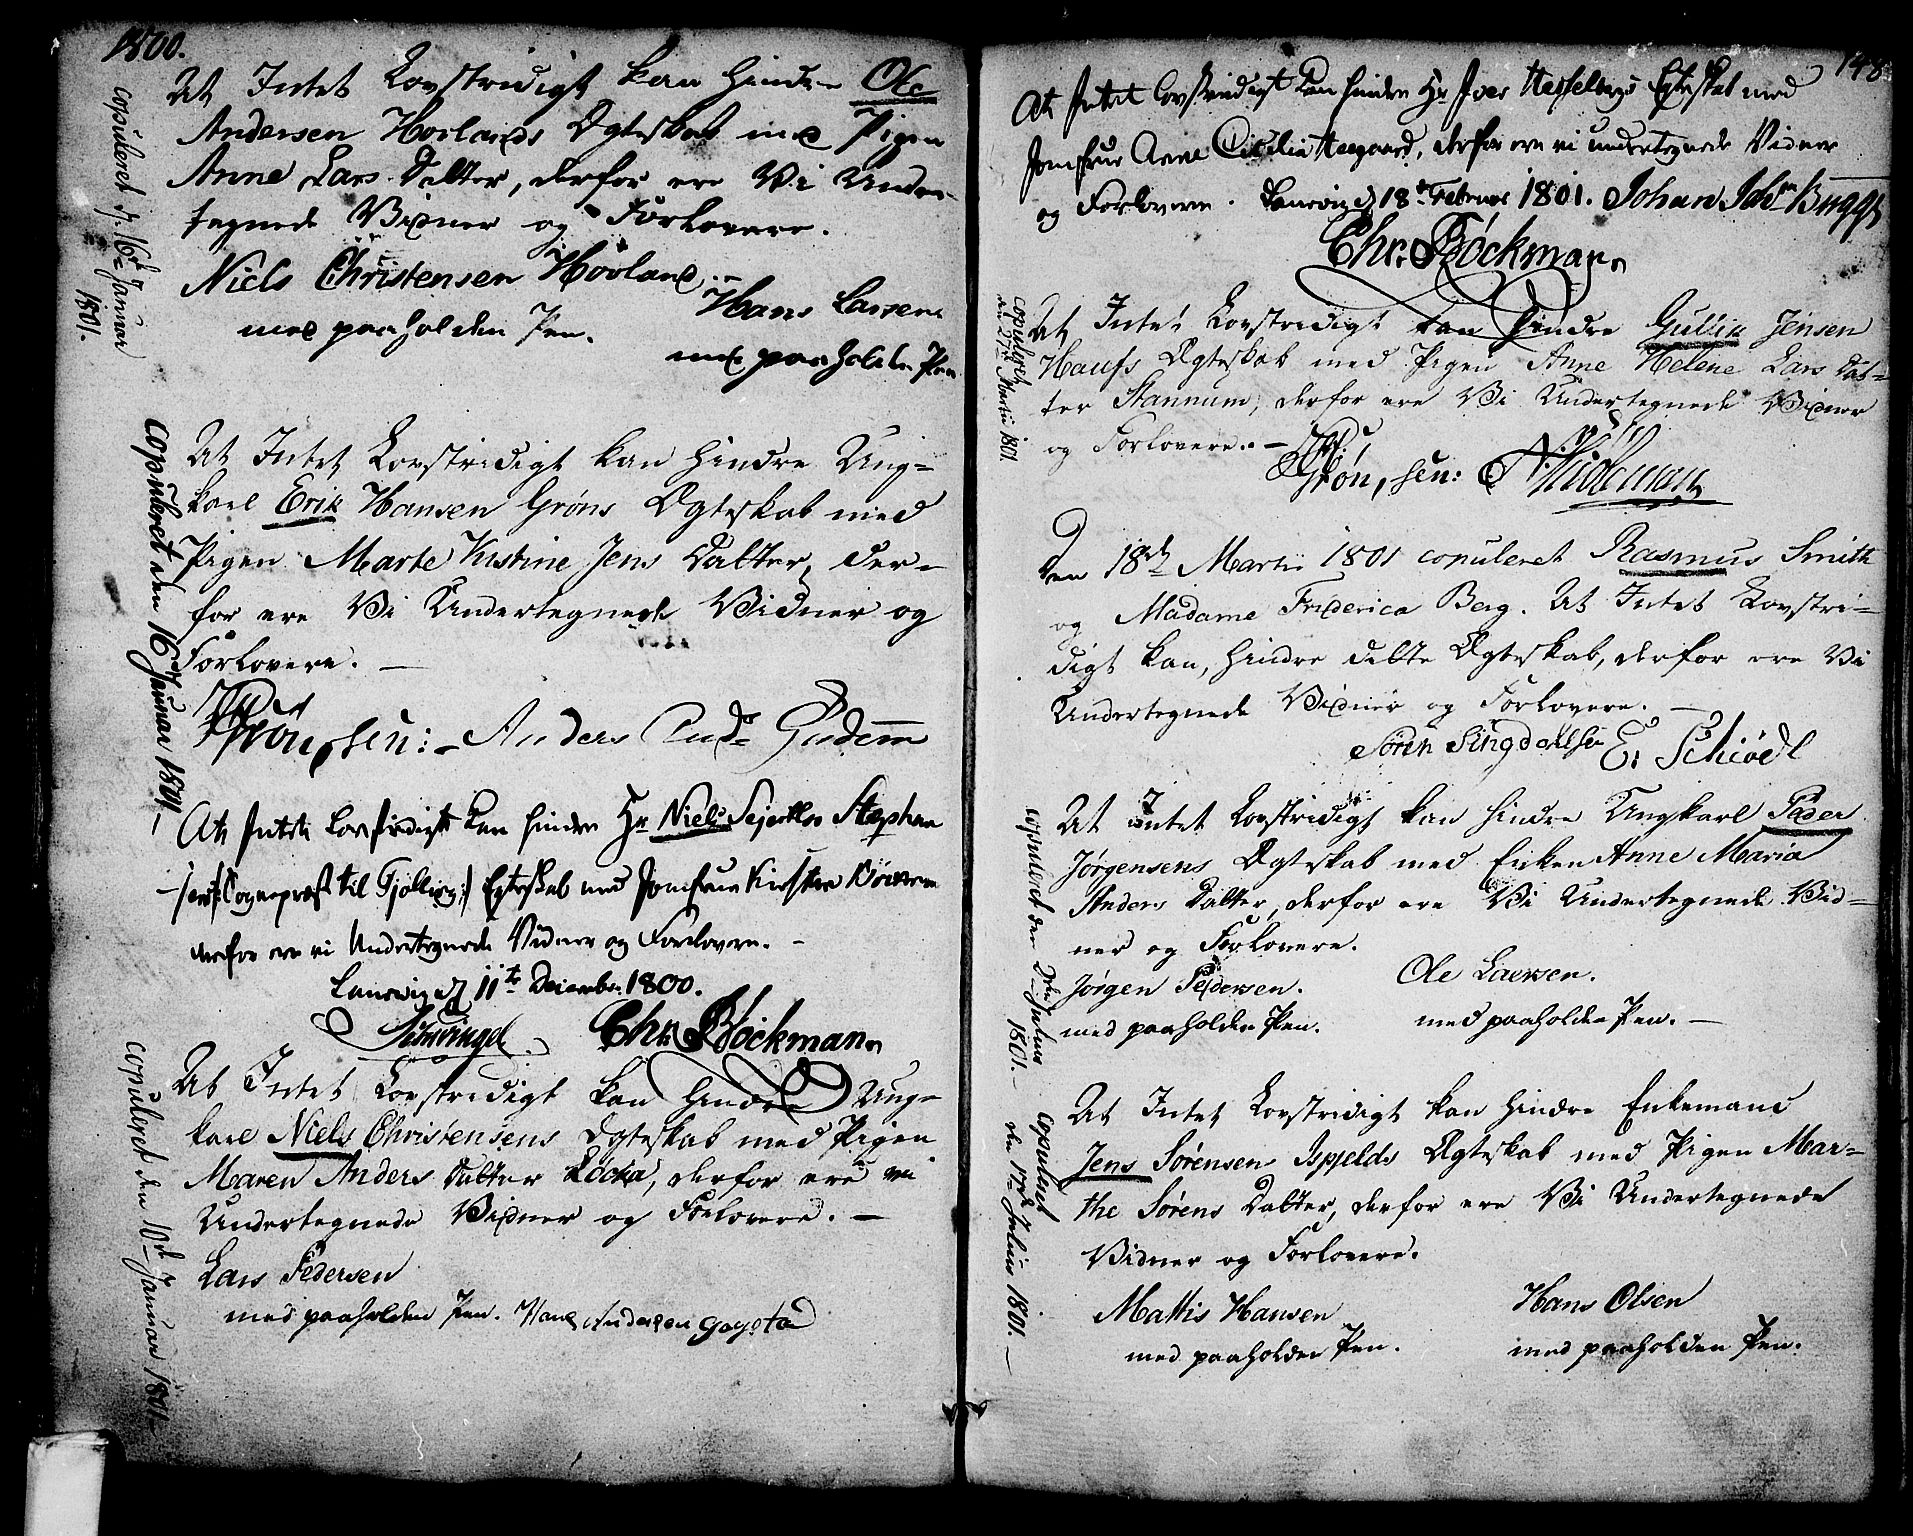 1800.
At Intet Lovstridigt kan hindre Ole
Andersen Hovlands Ægteskab med Pigen
Anne Lars Datter, derfor ere Vi Under-
tegnede Vidner og Forlovere.
Niels Christensen Hovland
med paaholden Pen.
Hans Larsen
med paaholden Pen
copuleret d. 16de Januar
1801.
At Intet Lovstridigt kan hindre Ung-
karl Erik Hansen Grøns Ægteskab med
Pigen Marte Kistine Jens Datter, der-
for ere Vi Undertegnede Vidner og
Forlovere. —
Grøn, sen: Anders
copuleret den 16 Januar 1801—
At Intet Lovstridigt kan hindre Hr Niels Stephan
sen/: Sognepræst til Tjølling:/ Egteskab med Jomfrue Kirstine
derfor ere vi Undertegnede Vidner og Forlovere. —
Laurvig d 11te December 1800.
Schwingel Chr. Bøckman
At Intet Lovstridigt kan hindre Ung-
karl Niels Christensens Ægteskab med Pigen
Maren Anders Datter Røcka, derfor ere vi
Undertegnede Vidner og Forlovere. —
Lars Pedersen
med paaholden Pen. Hans Andersen
copuleret den 10de Januar 1801—
148
At Intet Lovstridigt kan hindre Hr Iver Hesselbergs Egteskab med
Jomfrue Anne Cicilia Aaegaard, derfor ere vi undertegnede Vidner
og Forlovere. Laurvig d 18de Februar 1801. Johan Bugge
Chr. Bøckman
At Intet Lovstridigt kan hindre Gullik Jensen
Haufs Ægteskab med Pigen Anne Helene Lars Dat-
ter Stannum, derfor ere Vi Undertegnede Vidner
og Forlovere. —
Grøn, sen:
copuleret
den 27de Martii 1801.
Den 18de Martii 1801 copuleret Rasmus Smith
og Madame Friderica Berg. At Intet Lovstri-
digt kan hindre dette Ægteskab, derfor ere Vi
Undertegnede Vidner og Forlovere. —
Søren Singdahlsen E. Schiødt
At Intet Lovstridigt kan hindre Ungkarl Peder
Jørgensens Ægteskab med Enken Anne Maria
Anders Datter, derfor ere Vi Undertegnede Vid-
ner og Forlovere.
Jørgen Pedersen.
med paaholden Pen.
Ole Larssen.
med paaholden Pen. —
copuleret den 2den Julius
1801. —
At Intet Lovstridigt kan hindre Enkemand
Jens Sørensen Ispjelds Ægteskab med Pigen Mar-
the Sørens Datter, derfor ere Vi Undertegnede
Vidner og Forlovere.
Mattis Hansen
med paaholden Pen.
Hans Olsen
med paaholden Pen.
copuleret
den 17de Julius 1801. —